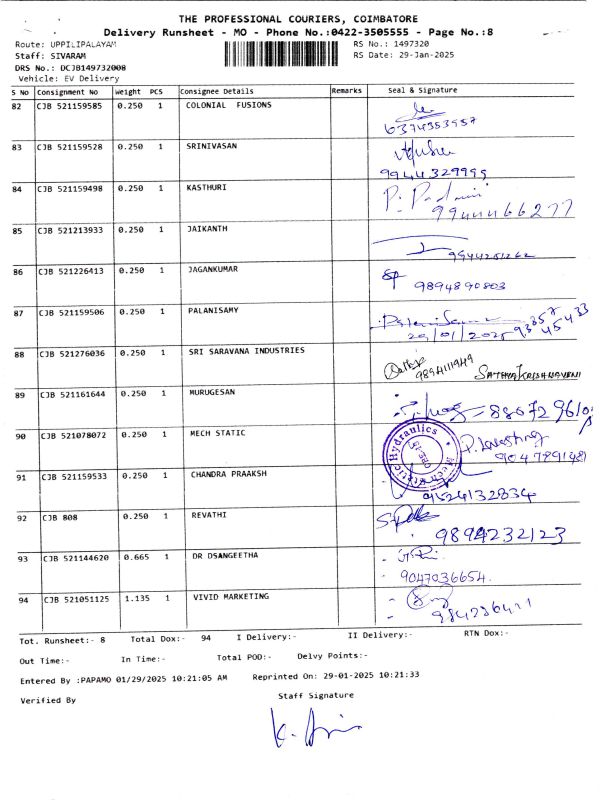 THE PROFESSIONAL COURIERS, COIMBATORE
Delivery Runsheet - MO - Phone No.:0422-3505555 - Page No.:8
Route: UPPILIPALAYAM
RS No.: 1497320
Staff: SIVARAM
RS Date: 29-Jan-2025
DRS No.: DCJB149732008
Vehicle: EV Delivery
S No Consignment No Weight PCS Consignee Details Remarks Seal & Signature
82 CJB 521159585 0.250 1 COLONIAL FUSIONS
6374353557
83 CJB 521159528 0.250 1 SRINIVASAN
9944329995
84 CJB 521159498 0.250 1 KASTHURI
9944466277
85 CJB 521213933 0.250 1 JAIKANTH
9944251262
86 CJB 521226413 0.250 1 JAGANKUMAR
9894890803
87 CJB 521159506 0.250 1 PALANISAMY
29/01/2025 93857 45433
88 CJB 521276036 0.250 1 SRI SARAVANA INDUSTRIES
9894111949 SATHYAKRISHNAVENI
89 CJB 521161644 0.250 1 MURUGESAN
90 CJB 521078072 0.250 1 MECH STATIC
Mech Static Hydraulics
CBE-15
9047891481
91 CJB 521159533 0.250 1 CHANDRA PRAAKSH
92 CJB 808 0.250 1 REVATHI
9894232123
93 CJB 521144620 0.665 1 DR DSANGEETHA
9047036654.
94 CJB 521051125 1.135 1 VIVID MARKETING
Tot. Runsheet:- 8 Total Dox:- 94 I Delivery:- II Delivery:- RTN Dox:-
Out Time:- In Time:- Total POD:- Delvy Points:-
Entered By :PAPAMO 01/29/2025 10:21:05 AM Reprinted On: 29-01-2025 10:21:33
Verified By Staff Signature